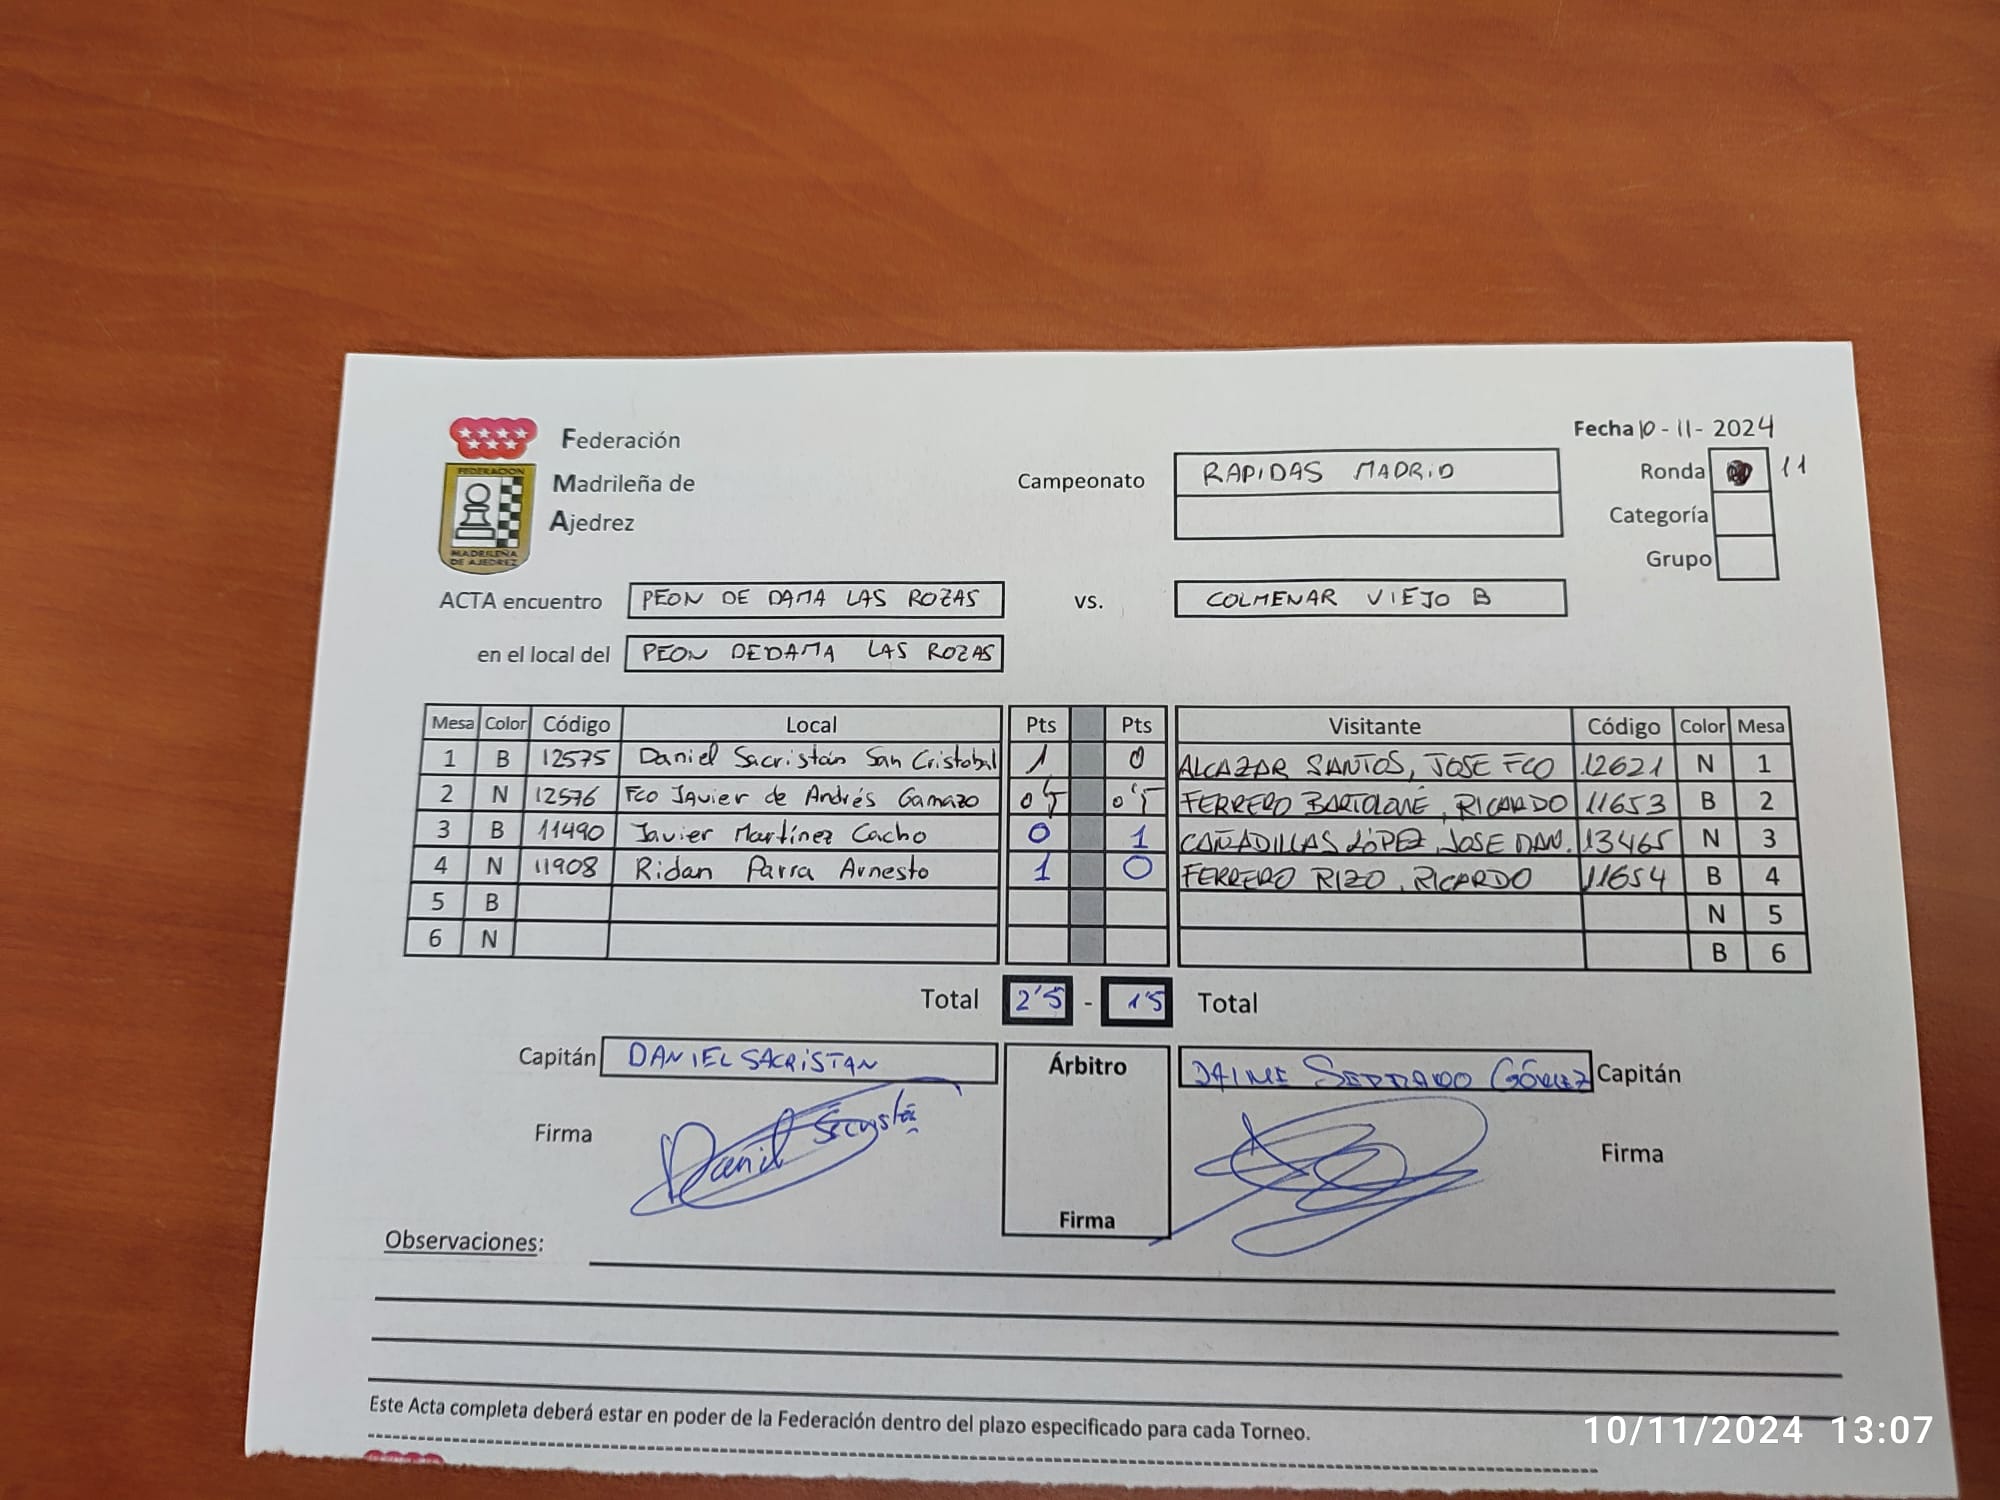 Fecha 10-11-2024
Federación
Madrileña de
Ajedrez
FEDERACION
MADRILEÑA
DE AJEDREZ
Campeonato RAPIDAS MADRID
Ronda 11
Categoría
Grupo
ACTA encuentro PEON DE DAMA LAS ROZAS vs. COLMENAR VIEJO B
en el local del PEON DE DAMA LAS ROZAS
Mesa Color Código Local Pts Pts Visitante Código Color Mesa
1 B 12575 Daniel Sacristán San Cristobal 1 0 ALCAZAR SANTOS, JOSE FCO 12621 N 1
2 N 12576 Fco Javier de Andrés Gamazo 0'5 0'5 FERRERO BARTOLOMÉ, RICARDO 11653 B 2
3 B 11490 Javier Martínez Cacho 0 1 CAÑADILLAS LÓPEZ, JOSE MAN. 13465 N 3
4 N 11908 Ridan Parra Arnesto 1 0 FERRERO RIZO, RICARDO 11654 B 4
5 B N 5
6 N B 6
Total 2'5 - 1'5 Total
Capitán DANIEL SACRISTAN Árbitro JAIME SERRANO GÓMEZ Capitán
Firma Daniel Sacristán Firma
Firma
Observaciones:
Este Acta completa deberá estar en poder de la Federación dentro del plazo especificado para cada Torneo.
10/11/2024 13:07